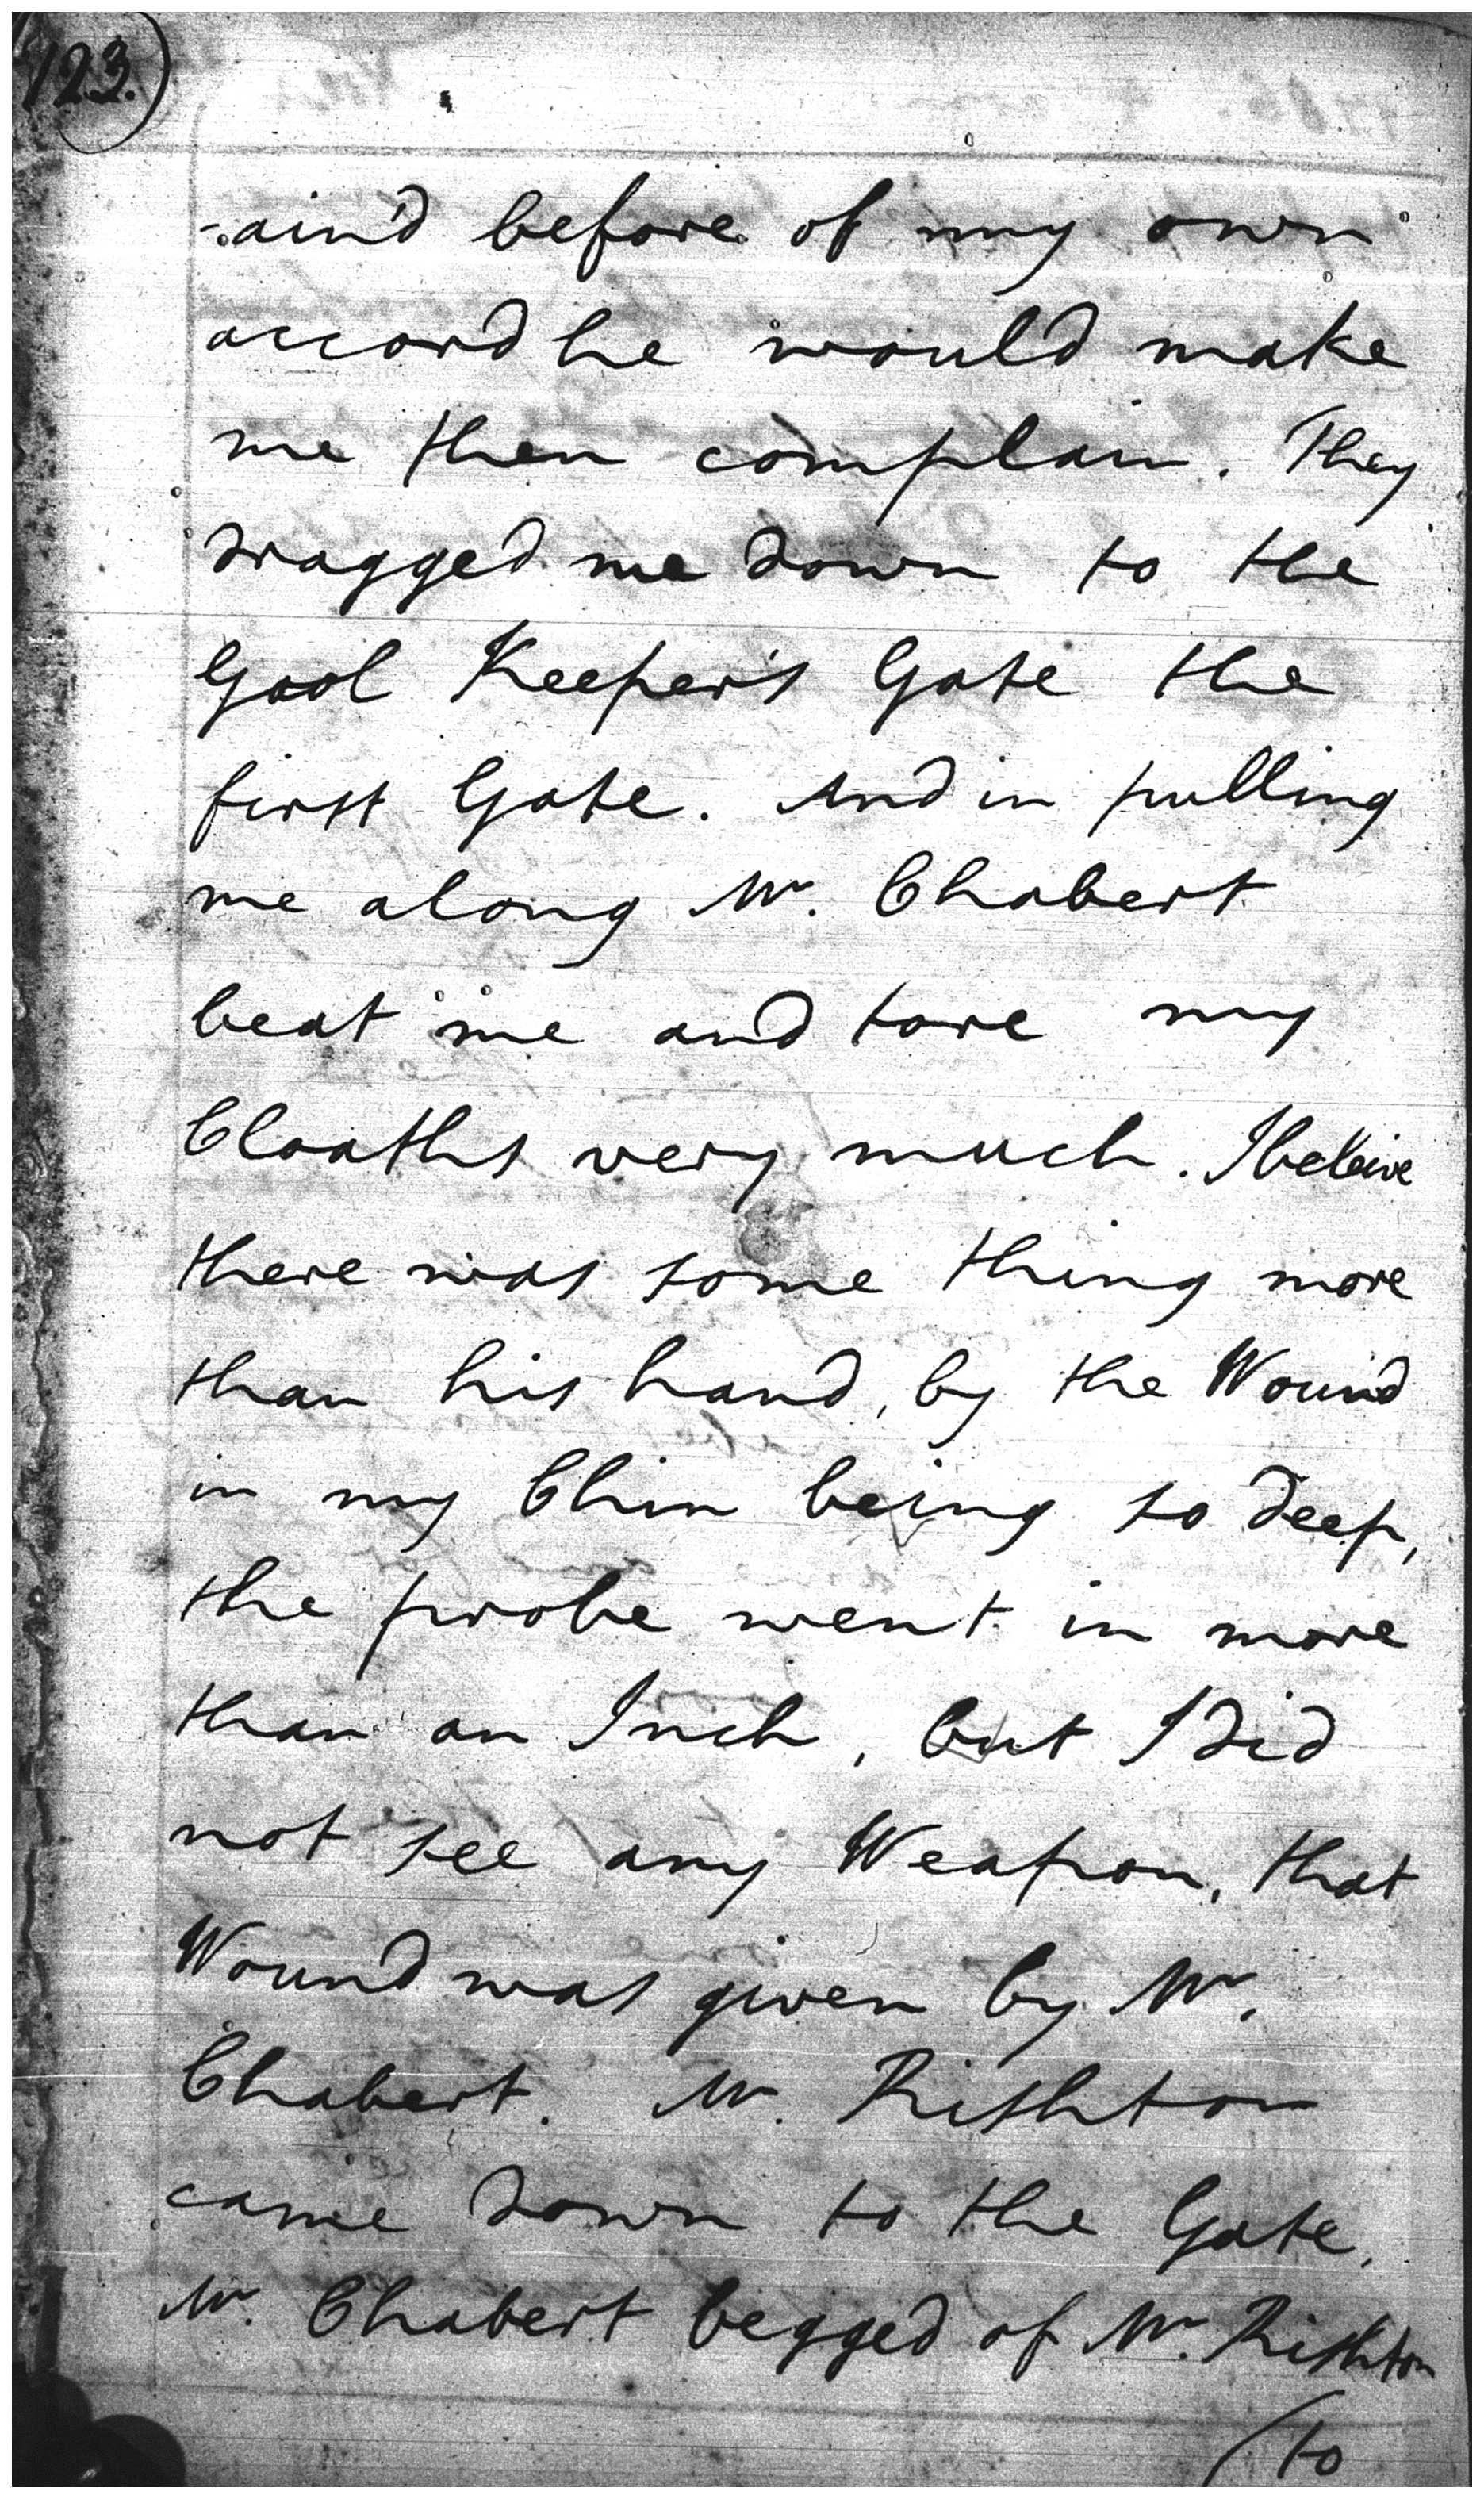 123.)
-ain'd before of my own
accord he would make
me then complain. They
dragged me down to the
Gaol Keeper's Gate the
first Gate. And in pulling
me along Mr. Chabert
beat me and tore my
Cloaths very much. I beleive
there was some thing more
than his hand, by the Wound
in my Chin being so deep,
the probe went in more
than an Inch, but I did
not see any Weapon, that
Wound was given by Mr.
Chabert. Mr. Rishton
came down to the Gate,
Mr. Chabert begged of Mr. Rishton
(to